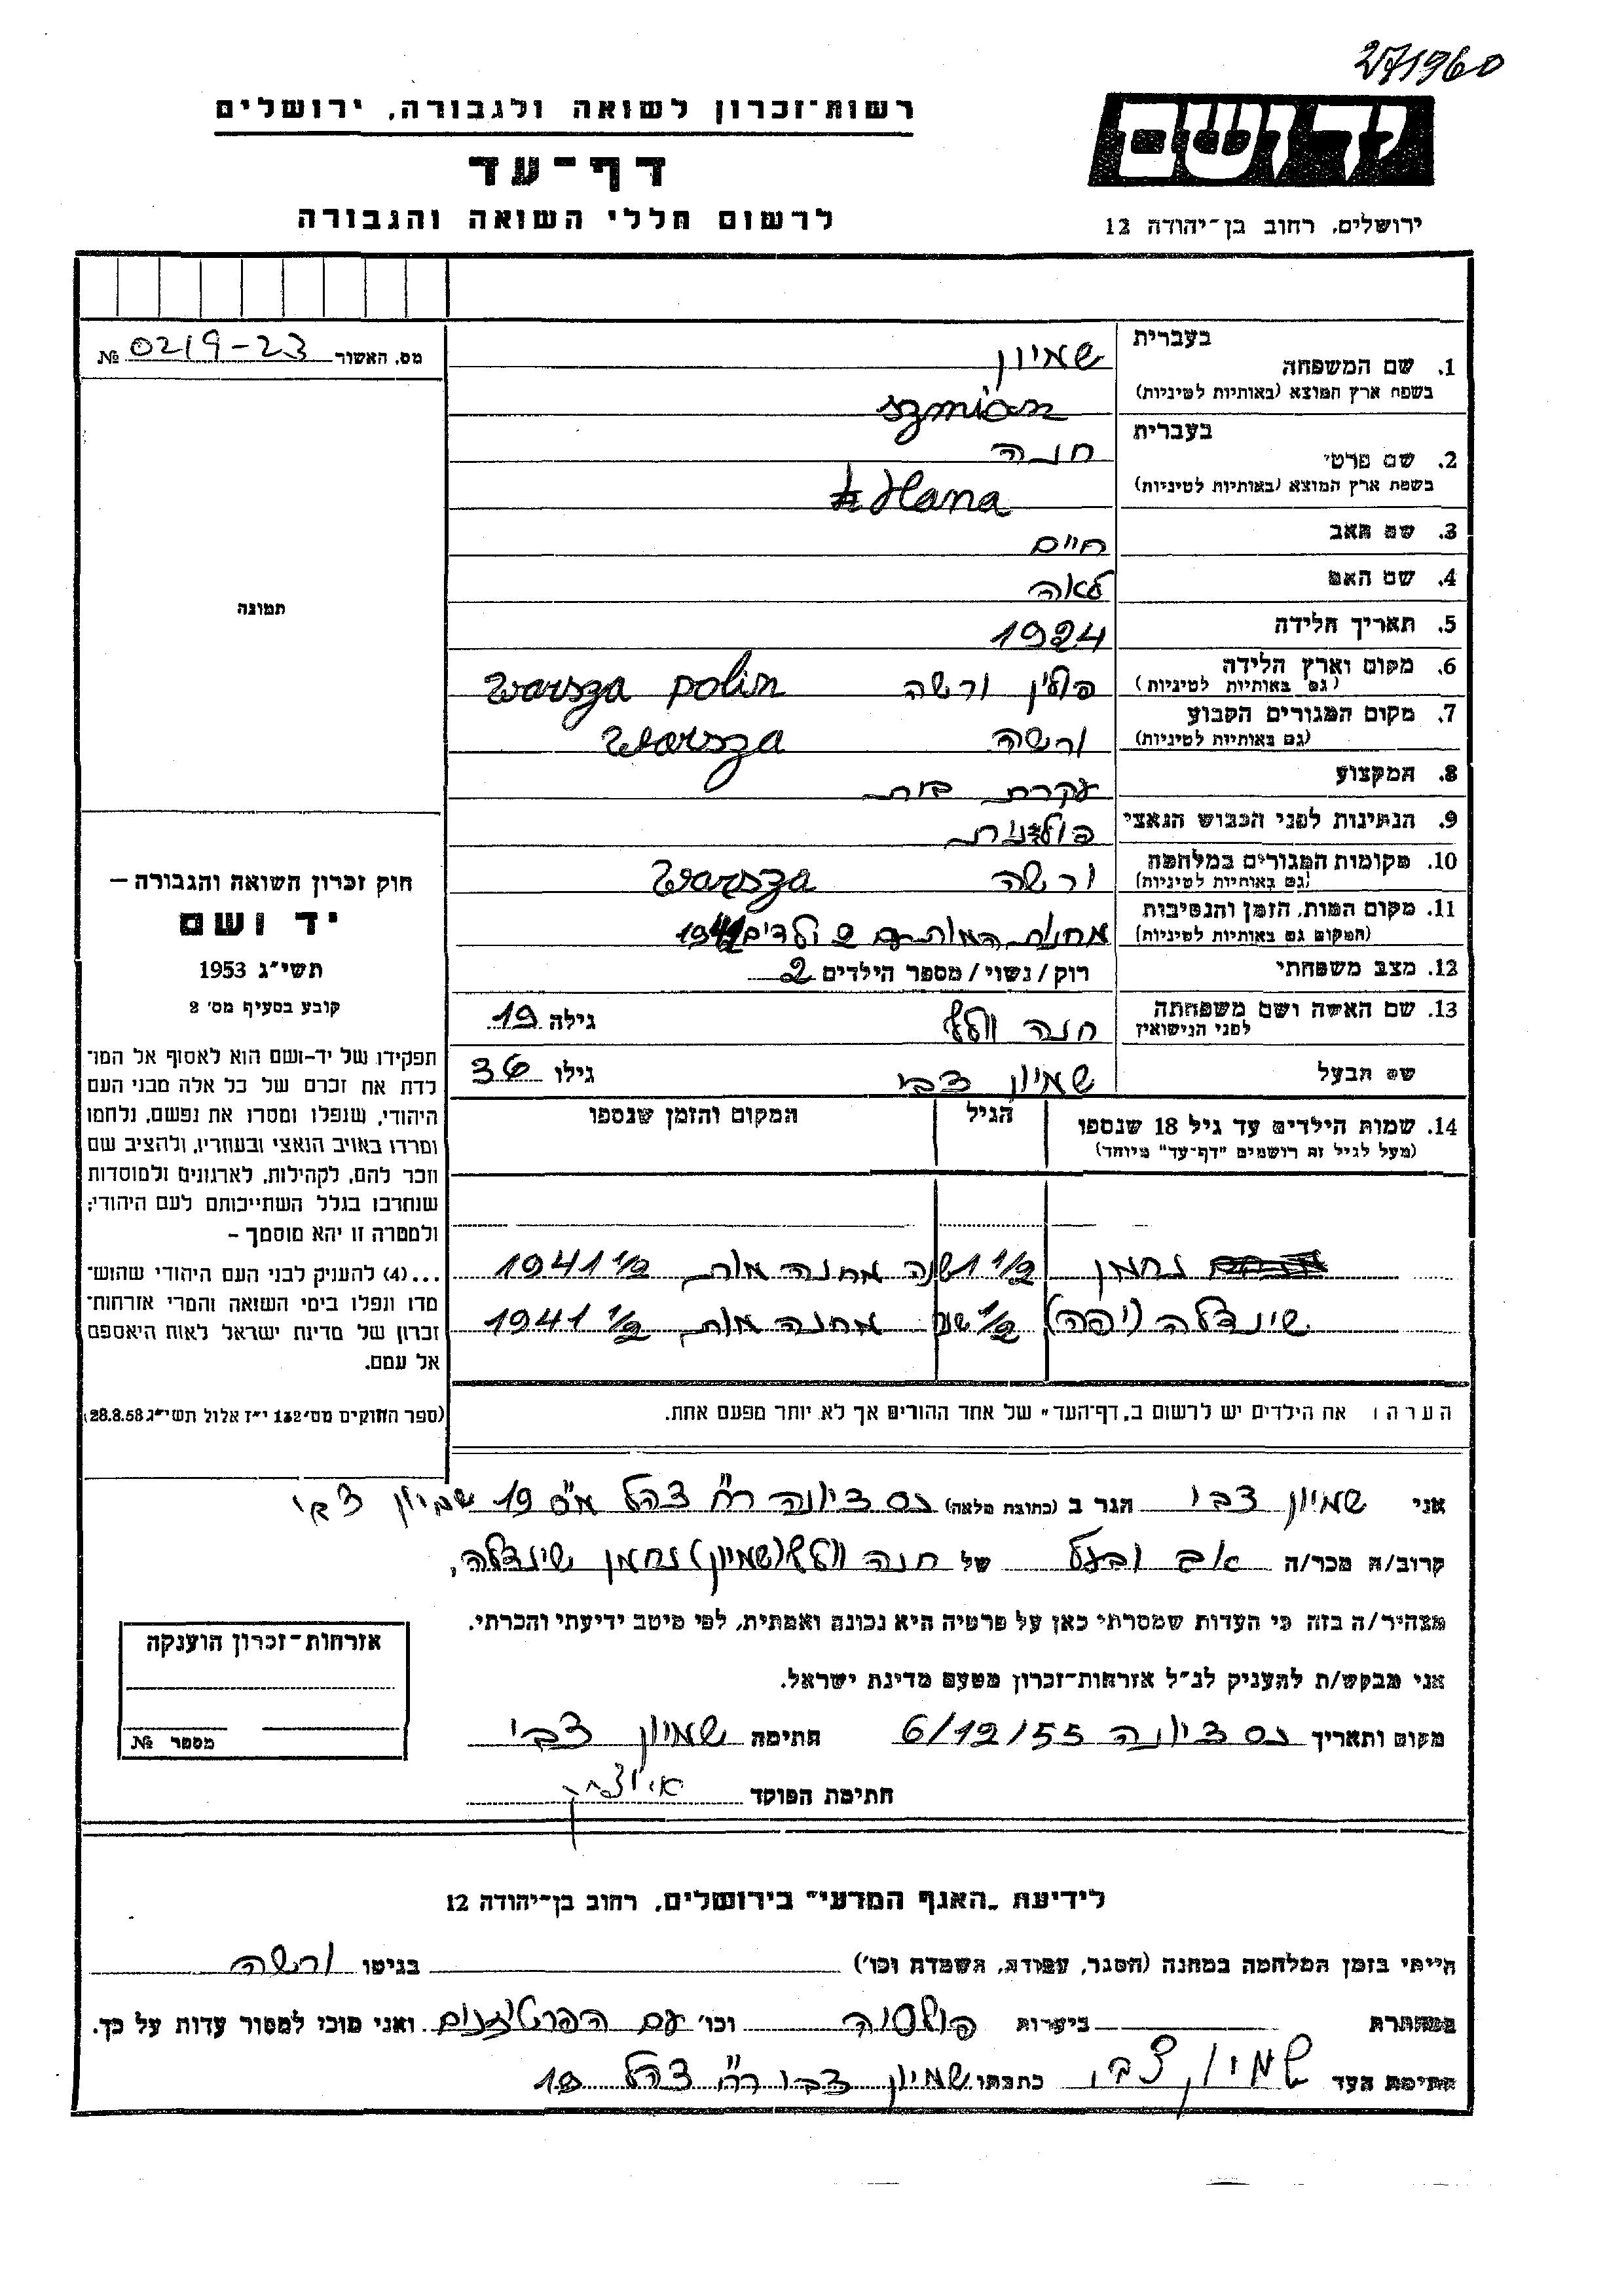 271960
רשות-זכרון לשואה ולגבורה, ירושלים
דף-עד
לרשום חללי השואה והגבורה
יד ושם
ירושלים, רחוב בן-יהודה 12
מס. האשור 0219-23 №
תמונה
חוק זכרון השואה והגבורה –
יד ושם
תשי"ג 1953
קובע בסעיף מס' 2
תפקידו של יד-ושם הוא לאסוף אל המו־
לדת את זכרם של כל אלה מבני העם
היהודי, שנפלו ומסרו את נפשם, נלחמו
ומרדו באויב הנאצי ובעוזריו, ולהציב שם
וזכר להם, לקהילות, לארגונים ולמוסדות
שנחרבו בגלל השתייכותם לעם היהודי;
ולמטרה זו יהא מוסמך –
...(4) להעניק לבני העם היהודי שהוש־
מדו ונפלו בימי השואה והמרי אזרחות־
זכרון של מדינת ישראל לאות היאספם
אל עמם.
(ספר החוקים מס' 132 י"ז אלול תשי"ג 28.8.53)
בעברית
1. שם המשפחה שמיון
בשפת ארץ המוצא (באותיות לטיניות) szmion
בעברית
2. שם פרטי חנה
בשפת ארץ המוצא (באותיות לטיניות) Hana
3. שם האב חיים
4. שם האם לאה
5. תאריך הלידה 1924
6. מקום וארץ הלידה
(גם באותיות לטיניות) פולין ורשה Warsza polin
7. מקום המגורים הקבוע
(גם באותיות לטיניות) ורשה Warsza
8. המקצוע עקרת בית
9. הנתינות לפני הכבוש הנאצי פולנית
10. מקומות המגורים במלחמה
(גם באותיות לטיניות) ורשה Warsza
11. מקום המות, הזמן והנסיבות
(המקום גם באותיות לטיניות) מחנות המות עם 2 ילדים
12. מצב משפחתי רוק/נשוי/מספר הילדים 2
13. שם האשה ושם משפחתה
לפני הנישואין חנה גילה 19
שם הבעל שמיון צבי גילו 36
14. שמות הילדים עד גיל 18 שנספו הגיל המקום והזמן שנספו
(מעל לגיל זה רושמים "דף-עד" מיוחד)
נחמן 1 1/2 שנה מחנה מות 1941 1/2
שינדלה (יפה) 1/2 שנה מחנה מות 1941 1/2
הערה: את הילדים יש לרשום ב"דף-העד" של אחד ההורים אך לא יותר מפעם אחת.
אני שמיון צבי הגר ב (כתובת מלאה) נס ציונה רח' צהל מס 19 שמיון צבי
קרוב/ה מכר/ה אב ובעל של חנה (שמיון) נחמן שינדלה,
מצהיר/ה בזה כי העדות שמסרתי כאן על פרטיה היא נכונה ואמתית, לפי מיטב ידיעתי והכרתי.
אני מבקש/ת להעניק לנ"ל אזרחות-זכרון מטעם מדינת ישראל.
מקום ותאריך נס ציונה 6/12/55 חתימה שמיון צבי
חתימת הפוקד
אזרחות-זכרון הוענקה
מספר №
לידיעת "האגף המדעי" בירושלים, רחוב בן-יהודה 12
הייתי בזמן המלחמה במחנה (הסגר, עבודה, השמדה וכו') בגיטו ורשה
במחתרת ביערות וכו' עם הפרטיזנים ואני מוכן למסור עדות על כך.
חתימת העד שמיון צבי כתבתו שמיון צבי רח' צהל 19